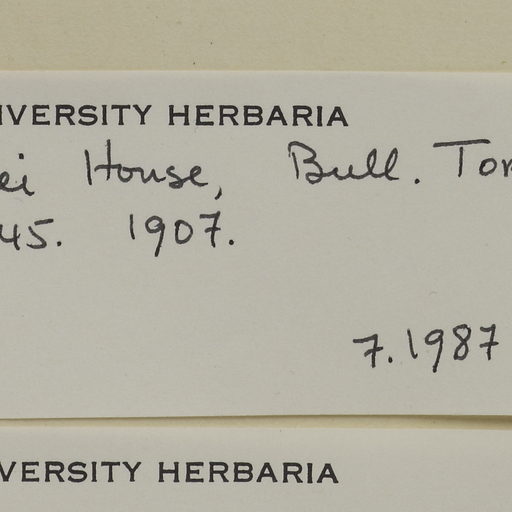 IVERSITY HERBARIA
ei House, Bull. Tor
45. 1907.
7.1987
VERSITY HERBARIA